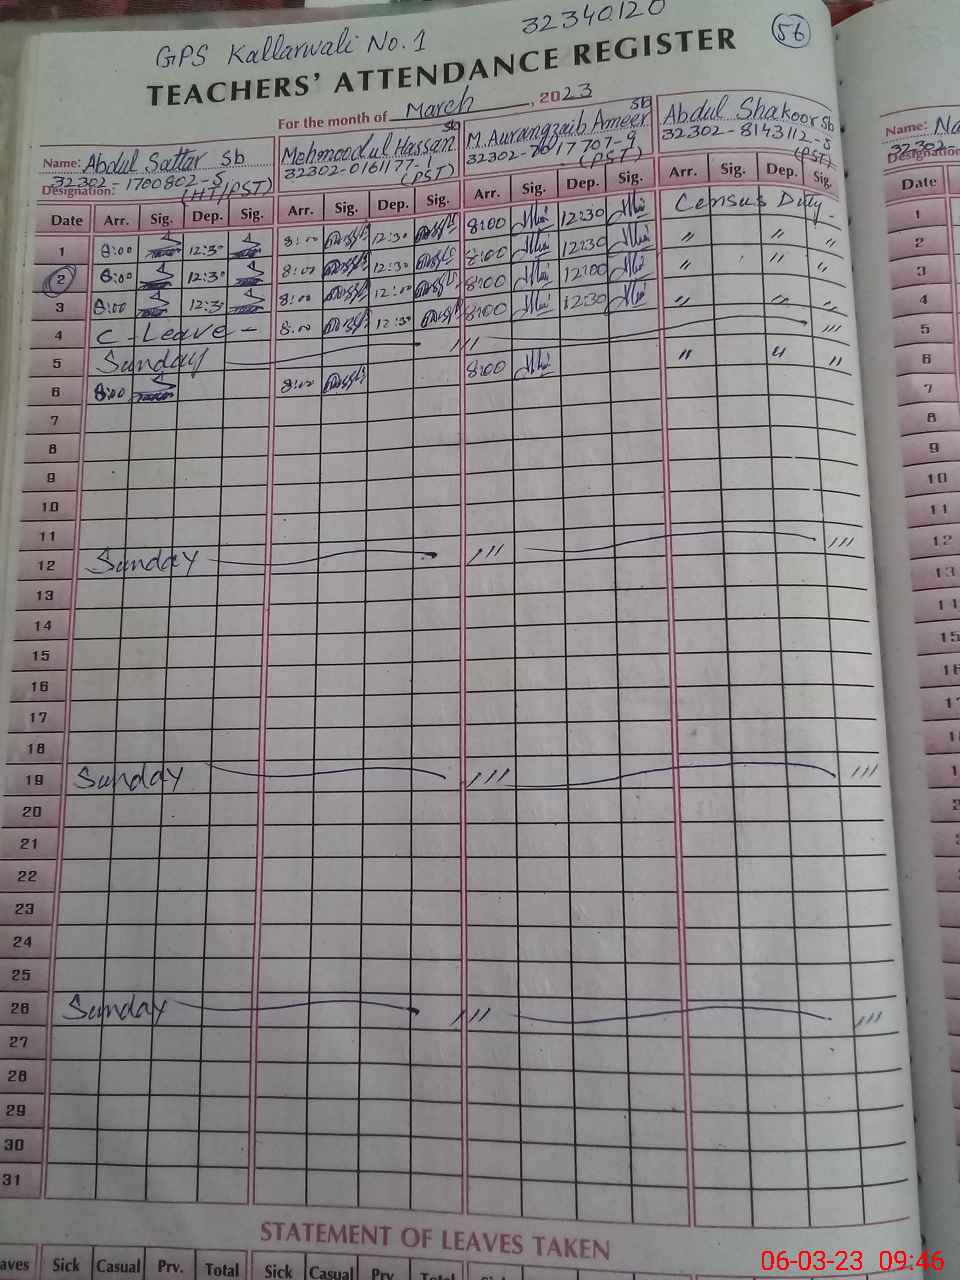 GPS Kallarwali No.1 32340120 56
TEACHERS' ATTENDANCE REGISTER
For the month of March, 2023
Name: Abdul Sattar Sb Mehmood ul Hassan Sb M. Aurangzaib Ameer Sb Abdul Shakoor Sb
32302-1700802-5 32302-0161177-1 32302-8143112-5
Designation: (HT/PST) (PST) (PST) (PST)
Date Arr. Sig. Dep. Sig. Arr. Sig. Dep. Sig. Arr. Sig. Dep. Sig. Arr. Sig. Dep. Sig.
1 8:00 12:30 8:00 12:30 8:00 12:30 Census Duty -
2 8:00 12:30 8:00 12:30 8:00 12:30 " " "
3 8:00 12:30 8:00 12:00 8:00 12:00 " " "
4 C - Leave - 8:00 12:30 8:00 12:30 " " "
5 Sunday /// ///
6 8:00 8:00 8:00 " " "
7
8
9
10
11
12 Sunday /// ///
13
14
15
16
17
18
19 Sunday /// ///
20
21
22
23
24
25
26 Sunday /// ///
27
28
29
30
31
STATEMENT OF LEAVES TAKEN
aves Sick Casual Prv. Total Sick Casual Prv. Total
Name: Na
32302-
Designation
Date
1
2
3
4
5
6
7
8
9
10
11
12
13
14
15
06-03-23 09:46